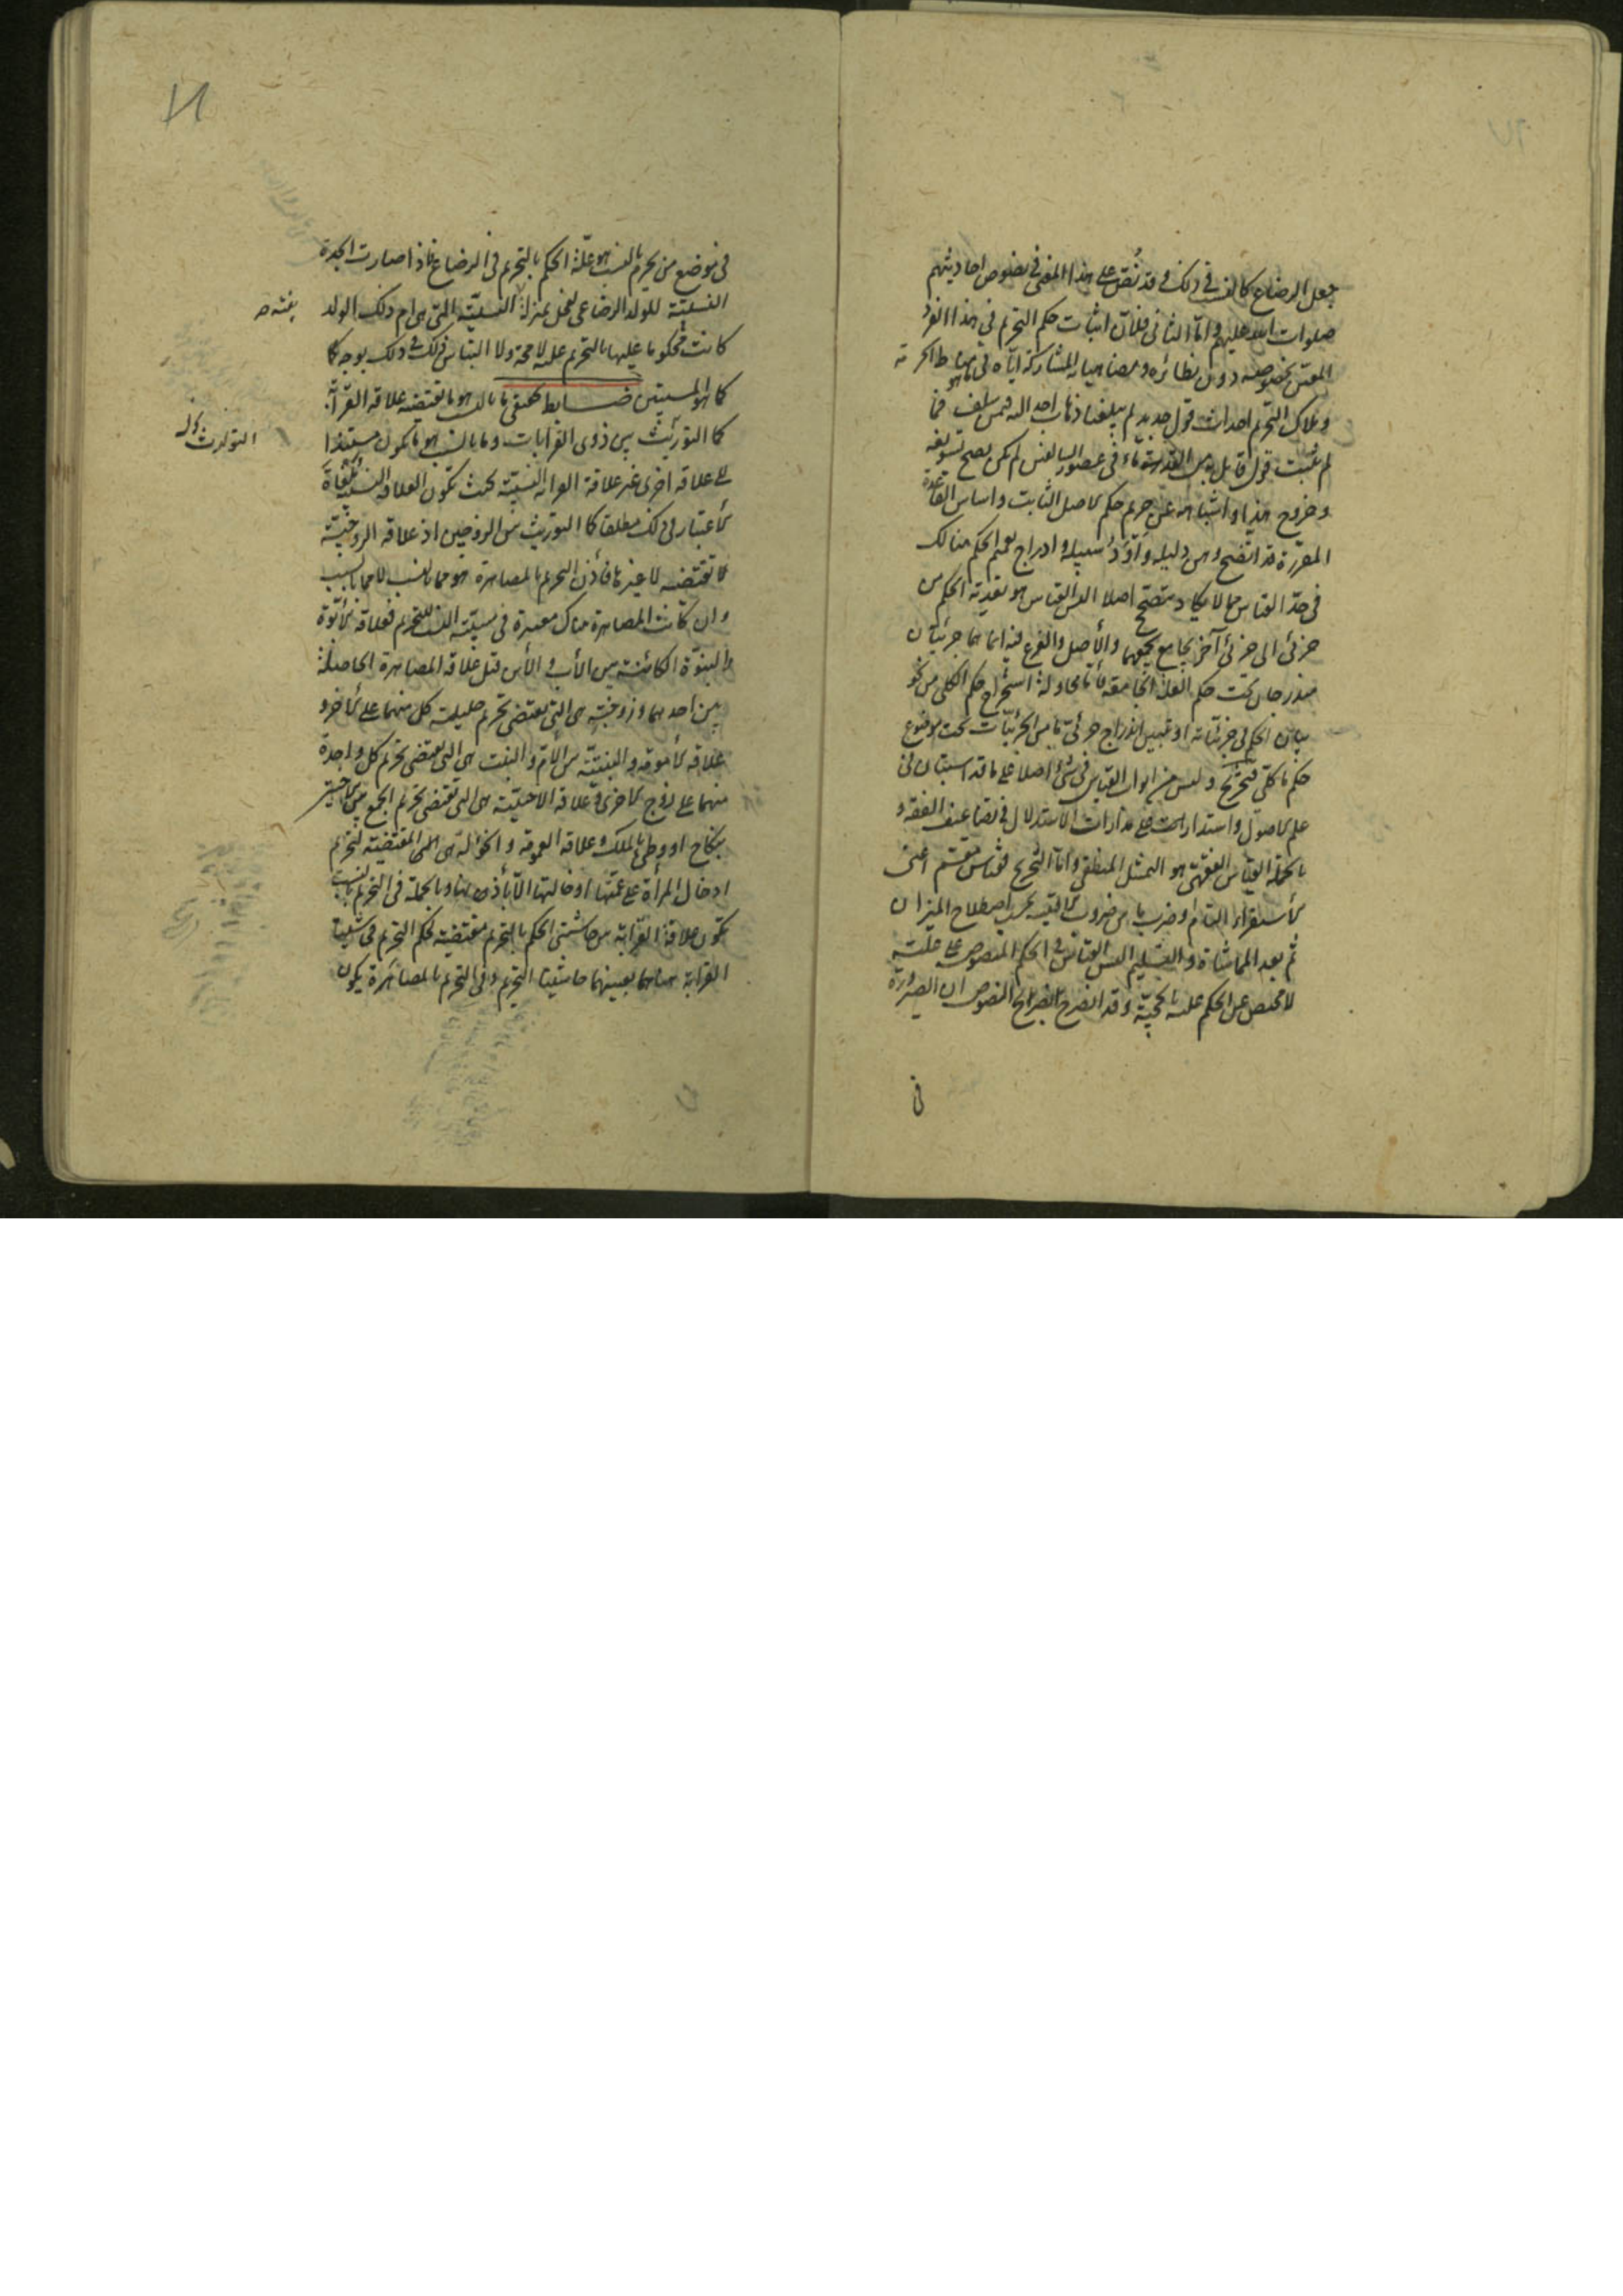 جعل الرضاع كالنسب في ذلك وقد نُصّ على هذا المعنى في نصوص احاديثهم
صلوات الله عليهم واما الثاني فلان اثبات حكم التحريم في هذا الفرد
المعين بخصوصه دون نظائره ومضاهياته المشاركة اياه في ما هو مناط الحرمة
وملاك التحريم احداث قول جديد لم يبلغنا ذهاب احد اليه فيمن سلف فما
لم يثبت قول قائل به من القدماء في عصور السالفين لم يكن يصح تسويغه
وخروج هذا واشباهه عن حريم حكم الاصل الثابت واساس القاعدة
المقررة قد اتضح وهن دليله و سبيله وادراج تعميم الحكم هنالك
في حد القياس مما لا يكاد يتصحح اصلا اليس القياس هو تعدية الحكم من
جزئي الى جزئي آخر بجامع يجمعهما والأصل والفرع فيه انما هما جزئيتان
مندرجتان تحت حكم العلة الجامعة فأما محاولة استخراج حكم الكلي من نحو
بيان الحكم في جزئياته او تبيين اندراج جزئي ما من الجزئيات تحت موضوع
حكم ما كلي فتخريج وليس من ابواب القياس في شيء اصلا على ما قد استبان في
علم الاصول واستدارت على مدارات الاستدلال في تضاعيف الفقه و
بالجملة القياس الفقهي هو التمثيل المنطقي واما التخريج فقياس مقسم اعني
الاستقراء التام او ضرب ما من ضروب الاقيسة بحسب اصطلاح الميزان
ثم بعد المماشاة والتسليم اليس القياس في الحكم المنصوص على علته
لا محيص عن الحكم عليه بالحجية وقد انصرح بصرايح النصوص ان الصيرورة
في
في موضع من يحرم بالنسب هو علة الحكم بالتحريم في الرضاع فاذا صارت الجدة
النسبية للولد الرضاعي لفحل بمنزلة النسبية التي هي ام ذلك الولد
كانت محكوما عليها بالتحريم عليه لا محة ولا التباس في ذلك بوجه كما
كما هو المستبين ضابط تحقيق ما بالنسب هو ما تقتضيه علاقة القرابة
كالتوريث بين ذوي القرابات وما بالسبب هو ما يكون مستندا
الى علاقة اخرى غير علاقة القرابة النسبية بحيث تكون العلاقة النسبية مُلغاة
الاعتبار في ذلك مطلقا كالتوريث بين الزوجين اذ علاقة الزوجية
تقتضيه لا غيرها فأذن التحريم بالمصاهرة هو مما بالنسب لا مما بالسبب
وان كانت المصاهرة هناك معتبرة في سببية النسب للتحريم فعلاقة الأبوة
والبنوة الكائنة بين الأب والأبن قبل علاقة المصاهرة الحاصلة
بين احدهما وزوجته هي التي تقتضي تحريم حليلة كل منهما على الاخر و
علاقة الأمومة والبنتية بين الأم والبنت هي التي تقتضي تحريم كل واحدة
منهما على زوج الاخرى وعلاقة الاختية هي التي تقتضي تحريم الجمع بين الاختين
بنكاح او وطي بالملك وعلاقة العمومة والخؤلة هي المقتضية لتحريم
ادخال المرأة على عمتها او خالتها الا بأذن منها وبالجملة في التحريم بالنسب
تكون علاقة القرابة بين حاشيتي الحكم بالتحريم مقتضية لحكم التحريم في حاشيتا
القرابة هناهما بعينهما حاشيتا التحريم وفي التحريم بالمصاهرة يكون